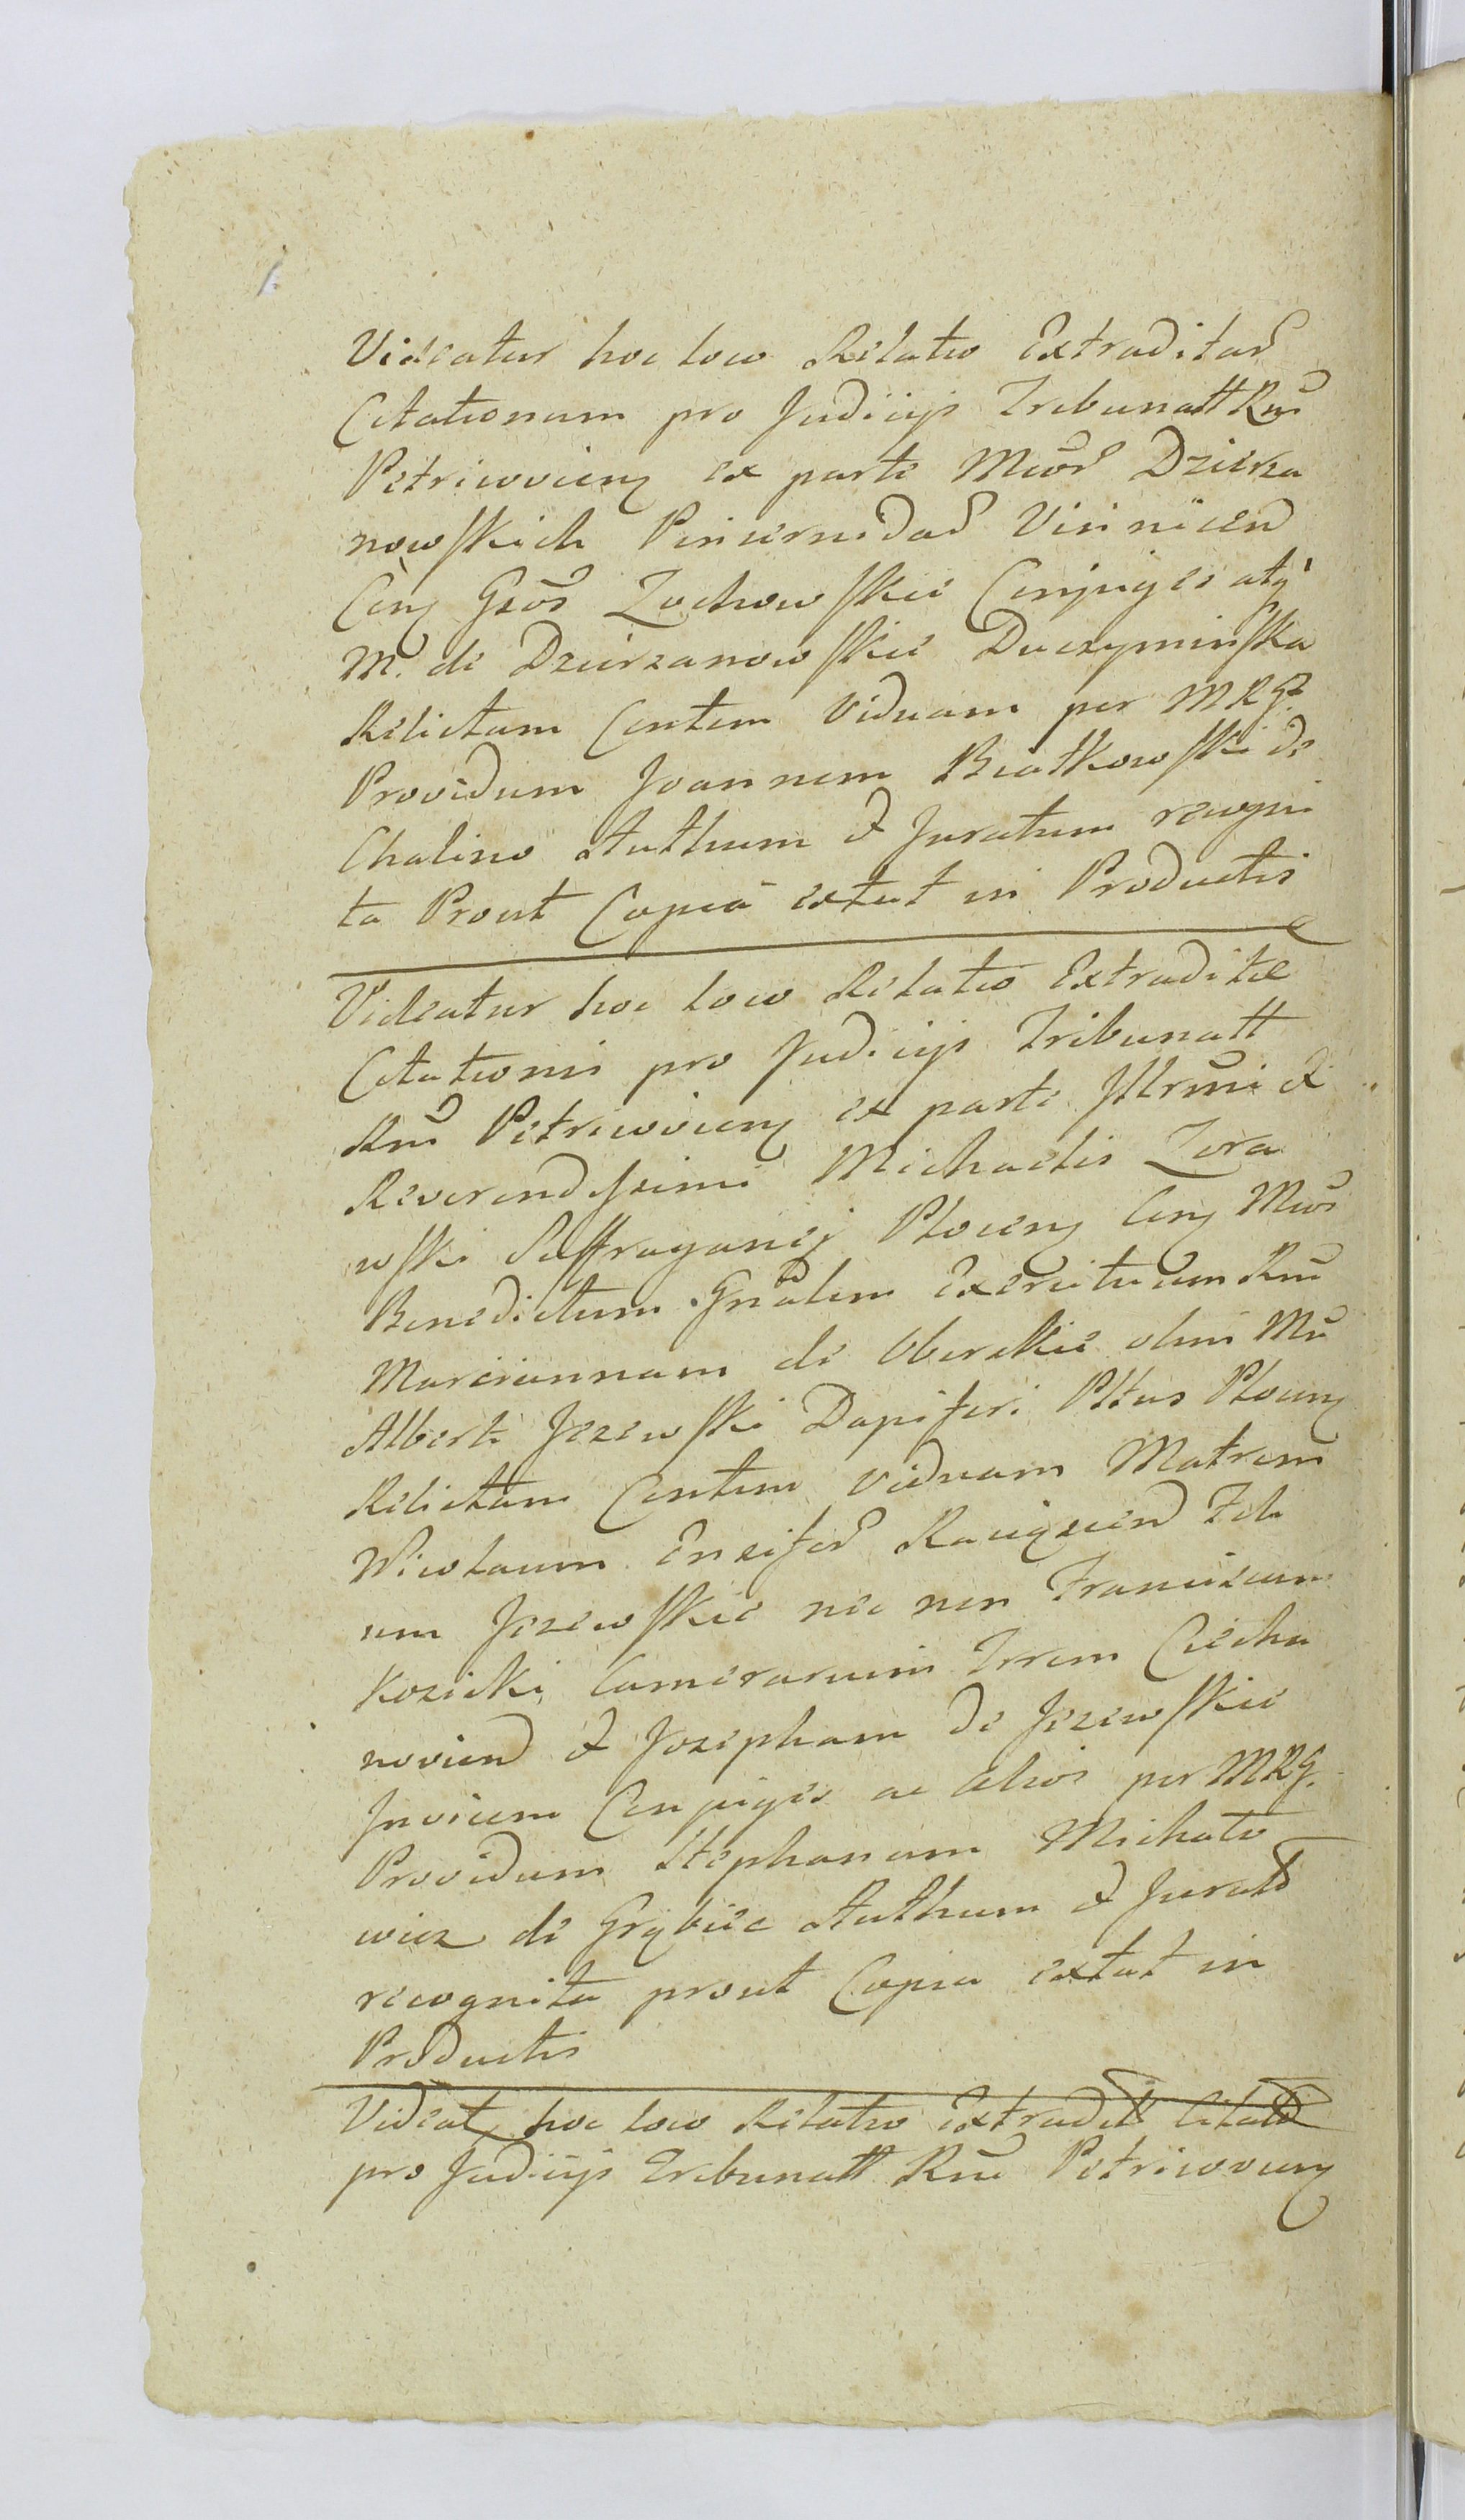 Videatur hoc loco Relatio Extraditar
Citationum pro Judicijs Tribunatt Rni
Petricovien ex parte Mcor Dzierza
nowskich Pincernidar Visnicen
Con Gsos Zochowskie Conjuges atq
M. de Dzierzanowskie Duczyminska
Relictam Contem Viduam per MRG.
Providum Joannem Białkowski de
Chalino Authum & Juratum recogni
ta Prout Copia extat in Productis
Videatur hoc loco Relatio Extraditæ
Citationis pro Judicijs Tribunatt
Rni Petricovien ex parte Illrmi &
Reverendissimi Michaelis Zora
wski Suffraganej Plocen Con Mcos
Benedictum Gnalem Exercituum Rni
Mariannam de Oborskie olim Mci
Alberti Jezewski Dapiferi Pttus Plocen
Relictam Contem viduam Matrem
Nicolaum Ensifer Raciązien Feli
cem Jezewskie nec non Franciscum
Kosicki Camerarium Trrem Ciecha
novien & Josepham de Jezewskie
Invicem Conjuges ac Alios per MRG.
Providum Stephanum Michało
wicz de Grąbiec Authum & Jurat
recognita prout Copia extat in
Productis
Videat hoc loco Relatio Extradit Citatio
pro Judicijs Tribunatt Rni Petricovien